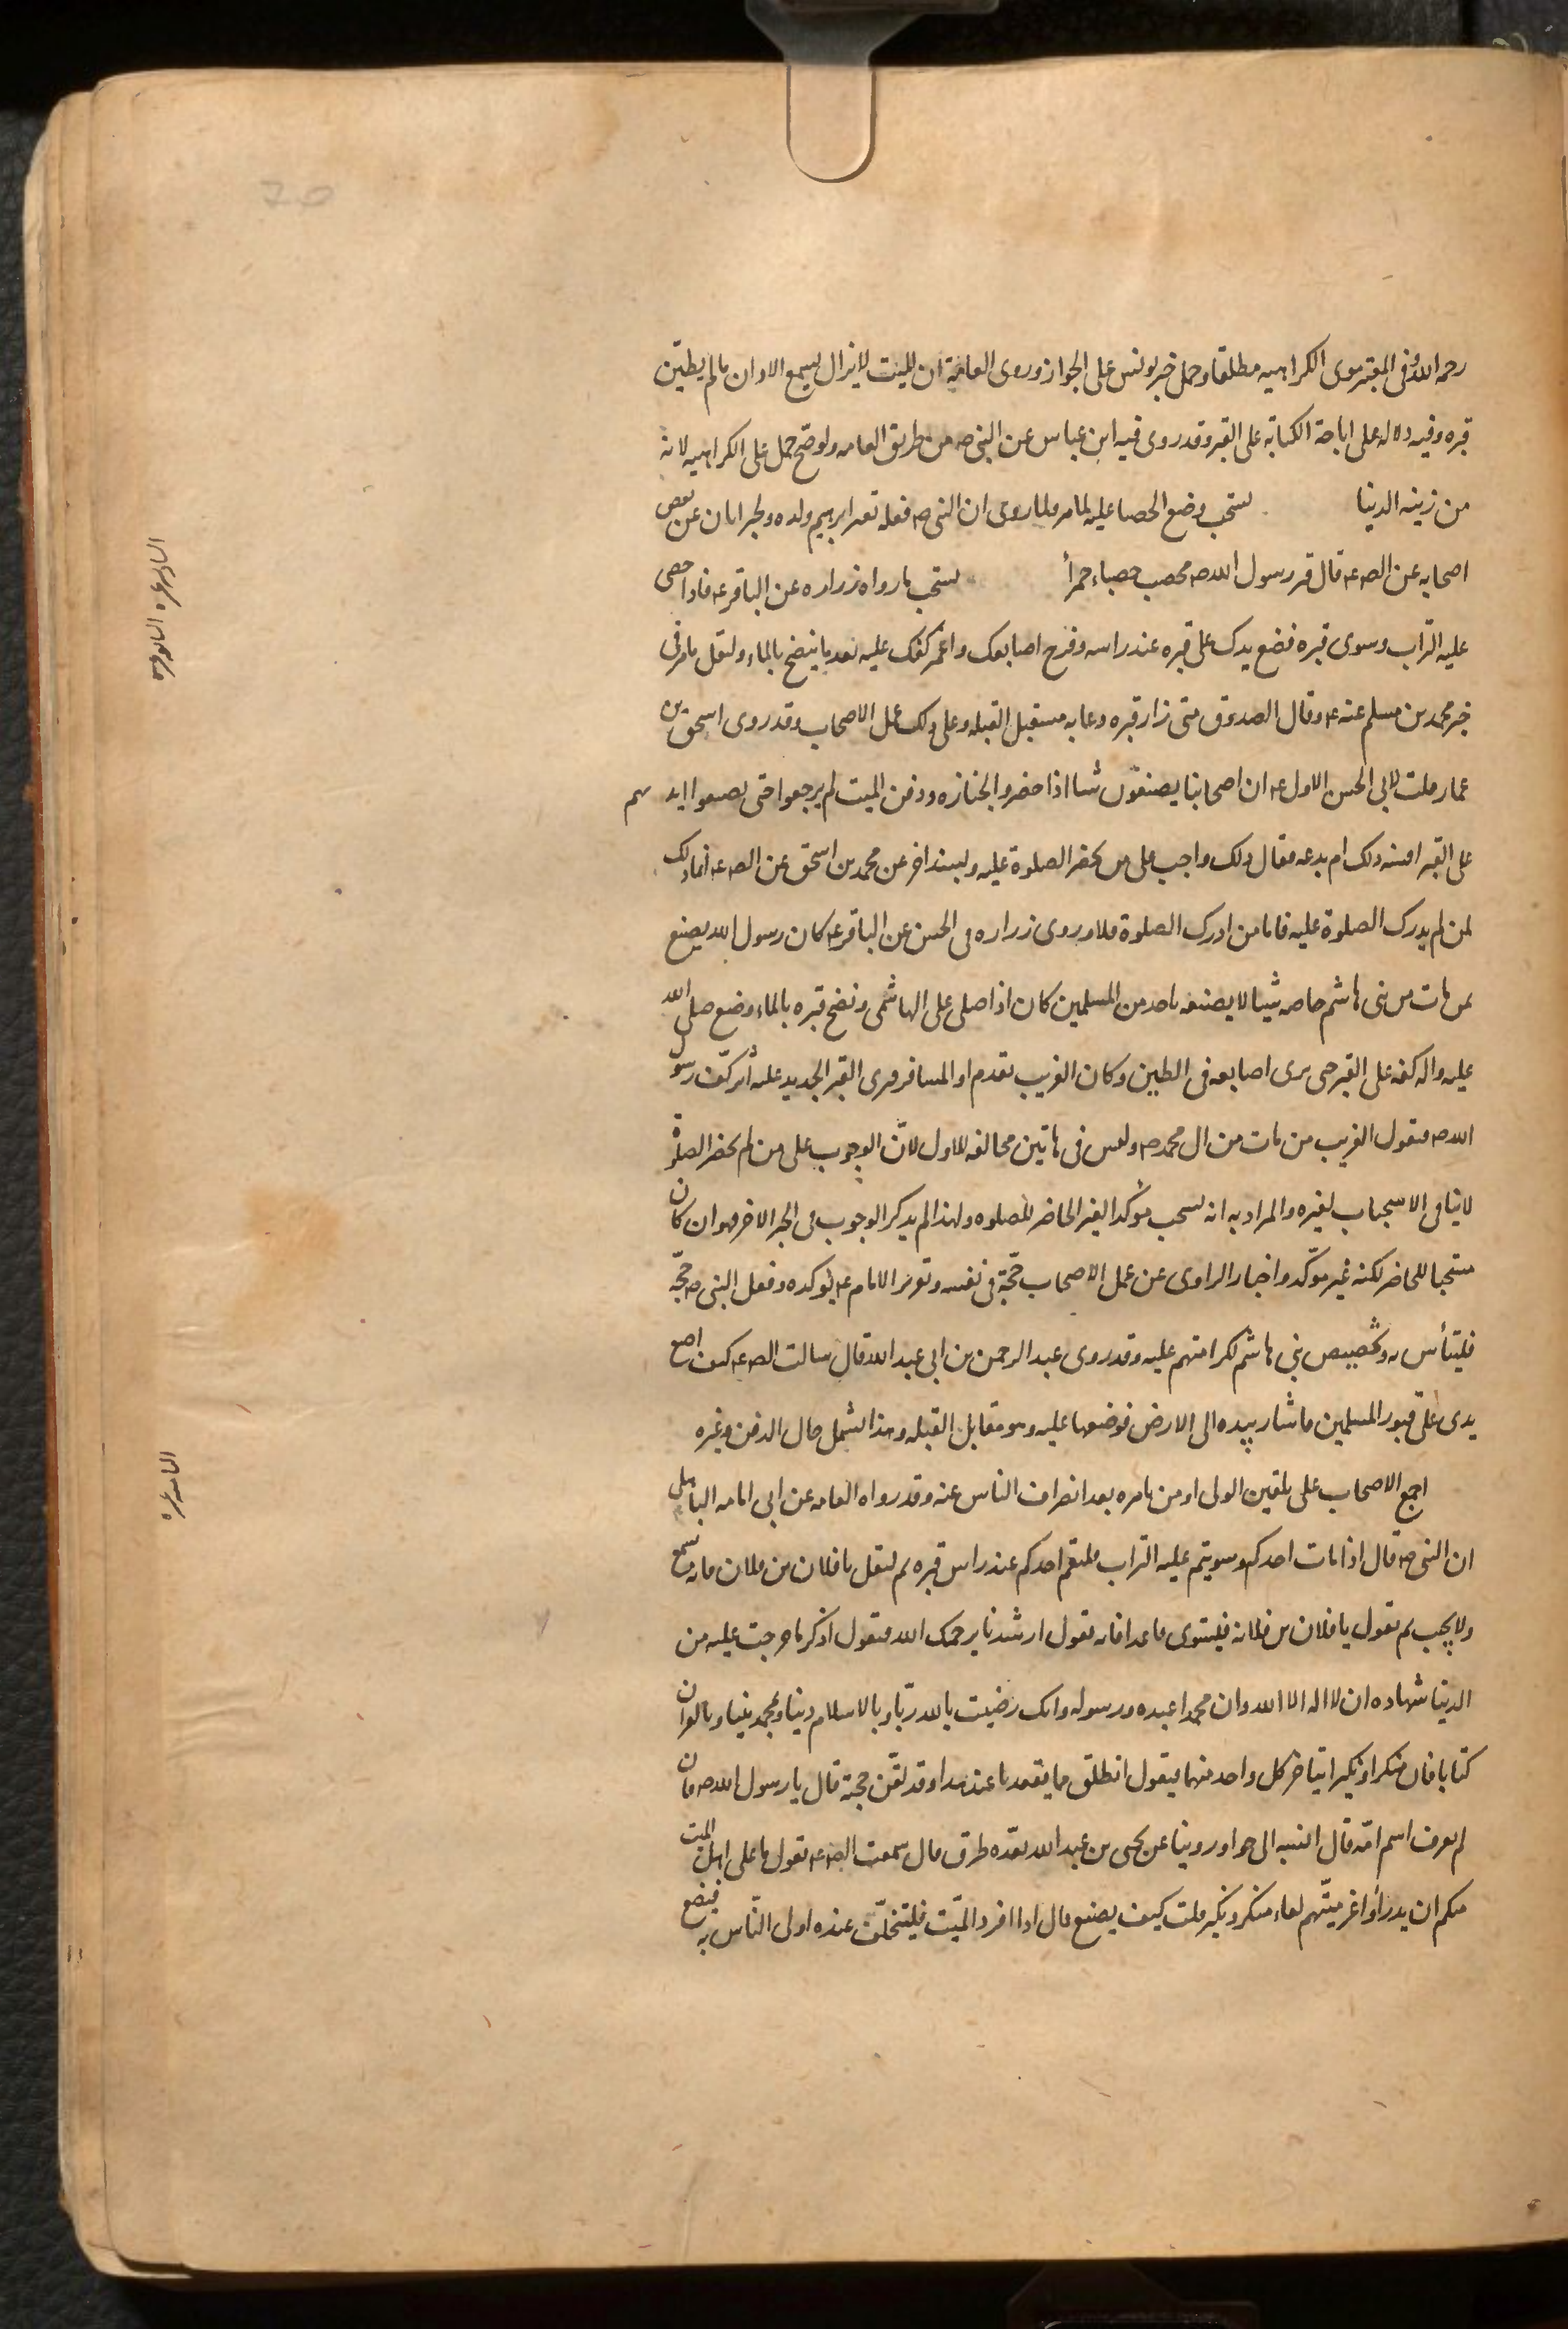 رحمه الله فى المعتبر قوى الكراهيه مطلقا وحمل خبر يونس على الجواز وروى العامة ان الميت لا يزال يسمع الاذان ما لم يطيّن
قبره وفيه دلاله على اباحة الكتابة على القبر وقد روى فيه ابن عباس عن النبى صه من طريق العامه ولو صح حمل على الكراهيه لانه
من زينه الدنيا يستحب وضع الحصا عليه لما مر ولما روى ان النبى صه فعله بقبر ابرهيم ولده ولخبر ابان عن بعض
اصحابه عن الصه عه قال قبر رسول الله صه محصب حصباء حمرأ يستحب ما رواه زراره عن الباقر عه فاذا حصى
عليه التراب وسوى قبره فضع يدك على قبره عند راسه وفرج اصابعك واغمز كفك عليه بعد ما ينضح بالماء وليقل ما مر فى
خبر محمد بن مسلم عنه عه وقال الصدوق متى زار قبره دعا به مستقبل القبله وعلى ذلك عمل الاصحاب وقد روى اسحق بن
عمار قلت لابى الحسن الاول عه ان اصحابنا يصنعون شيا اذا حضروا الجنازه ودفن الميت لم يرجعوا حتى يضعوا ايديهم
على القبر افسنه ذلك ام بدعه فقال ذلك واجب على من لم يحضر الصلوة عليه وبسند اخر عن محمد بن اسحق عن الصه عه انما ذلك
لمن لم يدرك الصلوة عليه فاما من ادرك الصلوة فلا وروى زراره فى الحسن عن الباقر عه كان رسول الله يصنع
بمن مات من بنى هاشم خاصه شيئا لا يصنعه باحد من المسلمين كان اذا صلى على الهاشمى ونضح قبره بالماء وضع صلى الله
عليه واله كفه على القبر حتى يرى اصابعه فى الطين وكان الغريب يقدم او المسافر فيرى القبر الجديد عليه أثر كفّ رسول
الله صه فيقول الغريب من مات من ال محمد صه وليس فى هاتين مخالفه للاول لانّ الوجوب على من لم يحضر الصلوة
لا ينافى الاستحباب لغيره والمراد به انه يستحب مؤكدا لغير الحاضر للصلوه ولهذا لم يذكر الوجوب فى الخبر الاخر فهو ان كان
مستحبا للحاضر لكنه غير موكّد واخبار الراوى عن عمل الاصحاب حجّة فى نفسه وتقرير الامام عه يؤكده وفعل النبى صه حجّة
فليتأس به وتخصيص بنى هاشم لكرامتهم عليه وقد روى عبد الرحمن بن ابى عبد الله قال سالت الصه عه كيف اضع
يدى على قبور المسلمين فاشار بيده الى الارض فوضعها عليه وهو مقابل القبله وهذا يشمل حال الدفن وغيره
اجمع الاصحاب على تلقين الولى او من يامره بعد انصراف الناس عنه وقد رواه العامه عن ابى امامه الباهلى
ان النبى صه قال اذا مات احدكم وسويتم عليه التراب فليقم احدكم عند راس قبره ثم ليقل يا فلان بن فلان فانه يسمع
ولا يجيب ثم يقول يا فلان بن فلانه فيستوى قاعدا فانه يقول ارشدنا يرحمك الله فيقول اذكر ما خرجت عليه من
الدنيا شهاده ان لا اله الا الله وان محمدا عبده ورسوله وانك رضيت بالله ربّا وبالاسلام دينا وبمحمد نبيا وبالقران
كتابا فان منكرا ونكيرا يتاخر كل واحد منهما فيقول انطلق فما يقعدنا عند هذا وقد لقّن حجته قال يا رسول الله صه فان
لم يعرف اسم امّه قال انسبه الى حوا وروينا عن يحيى بن عبد الله بعدّه طرق قال سمعت الصه عه يقول ما على اهل الميت
منكم ان يدرأوا عن ميّتهم لقاء منكر ونكير قلت كيف يصنع قال اذا افرد الميّت فليتخلّف عنده اولى الناس به فيضع